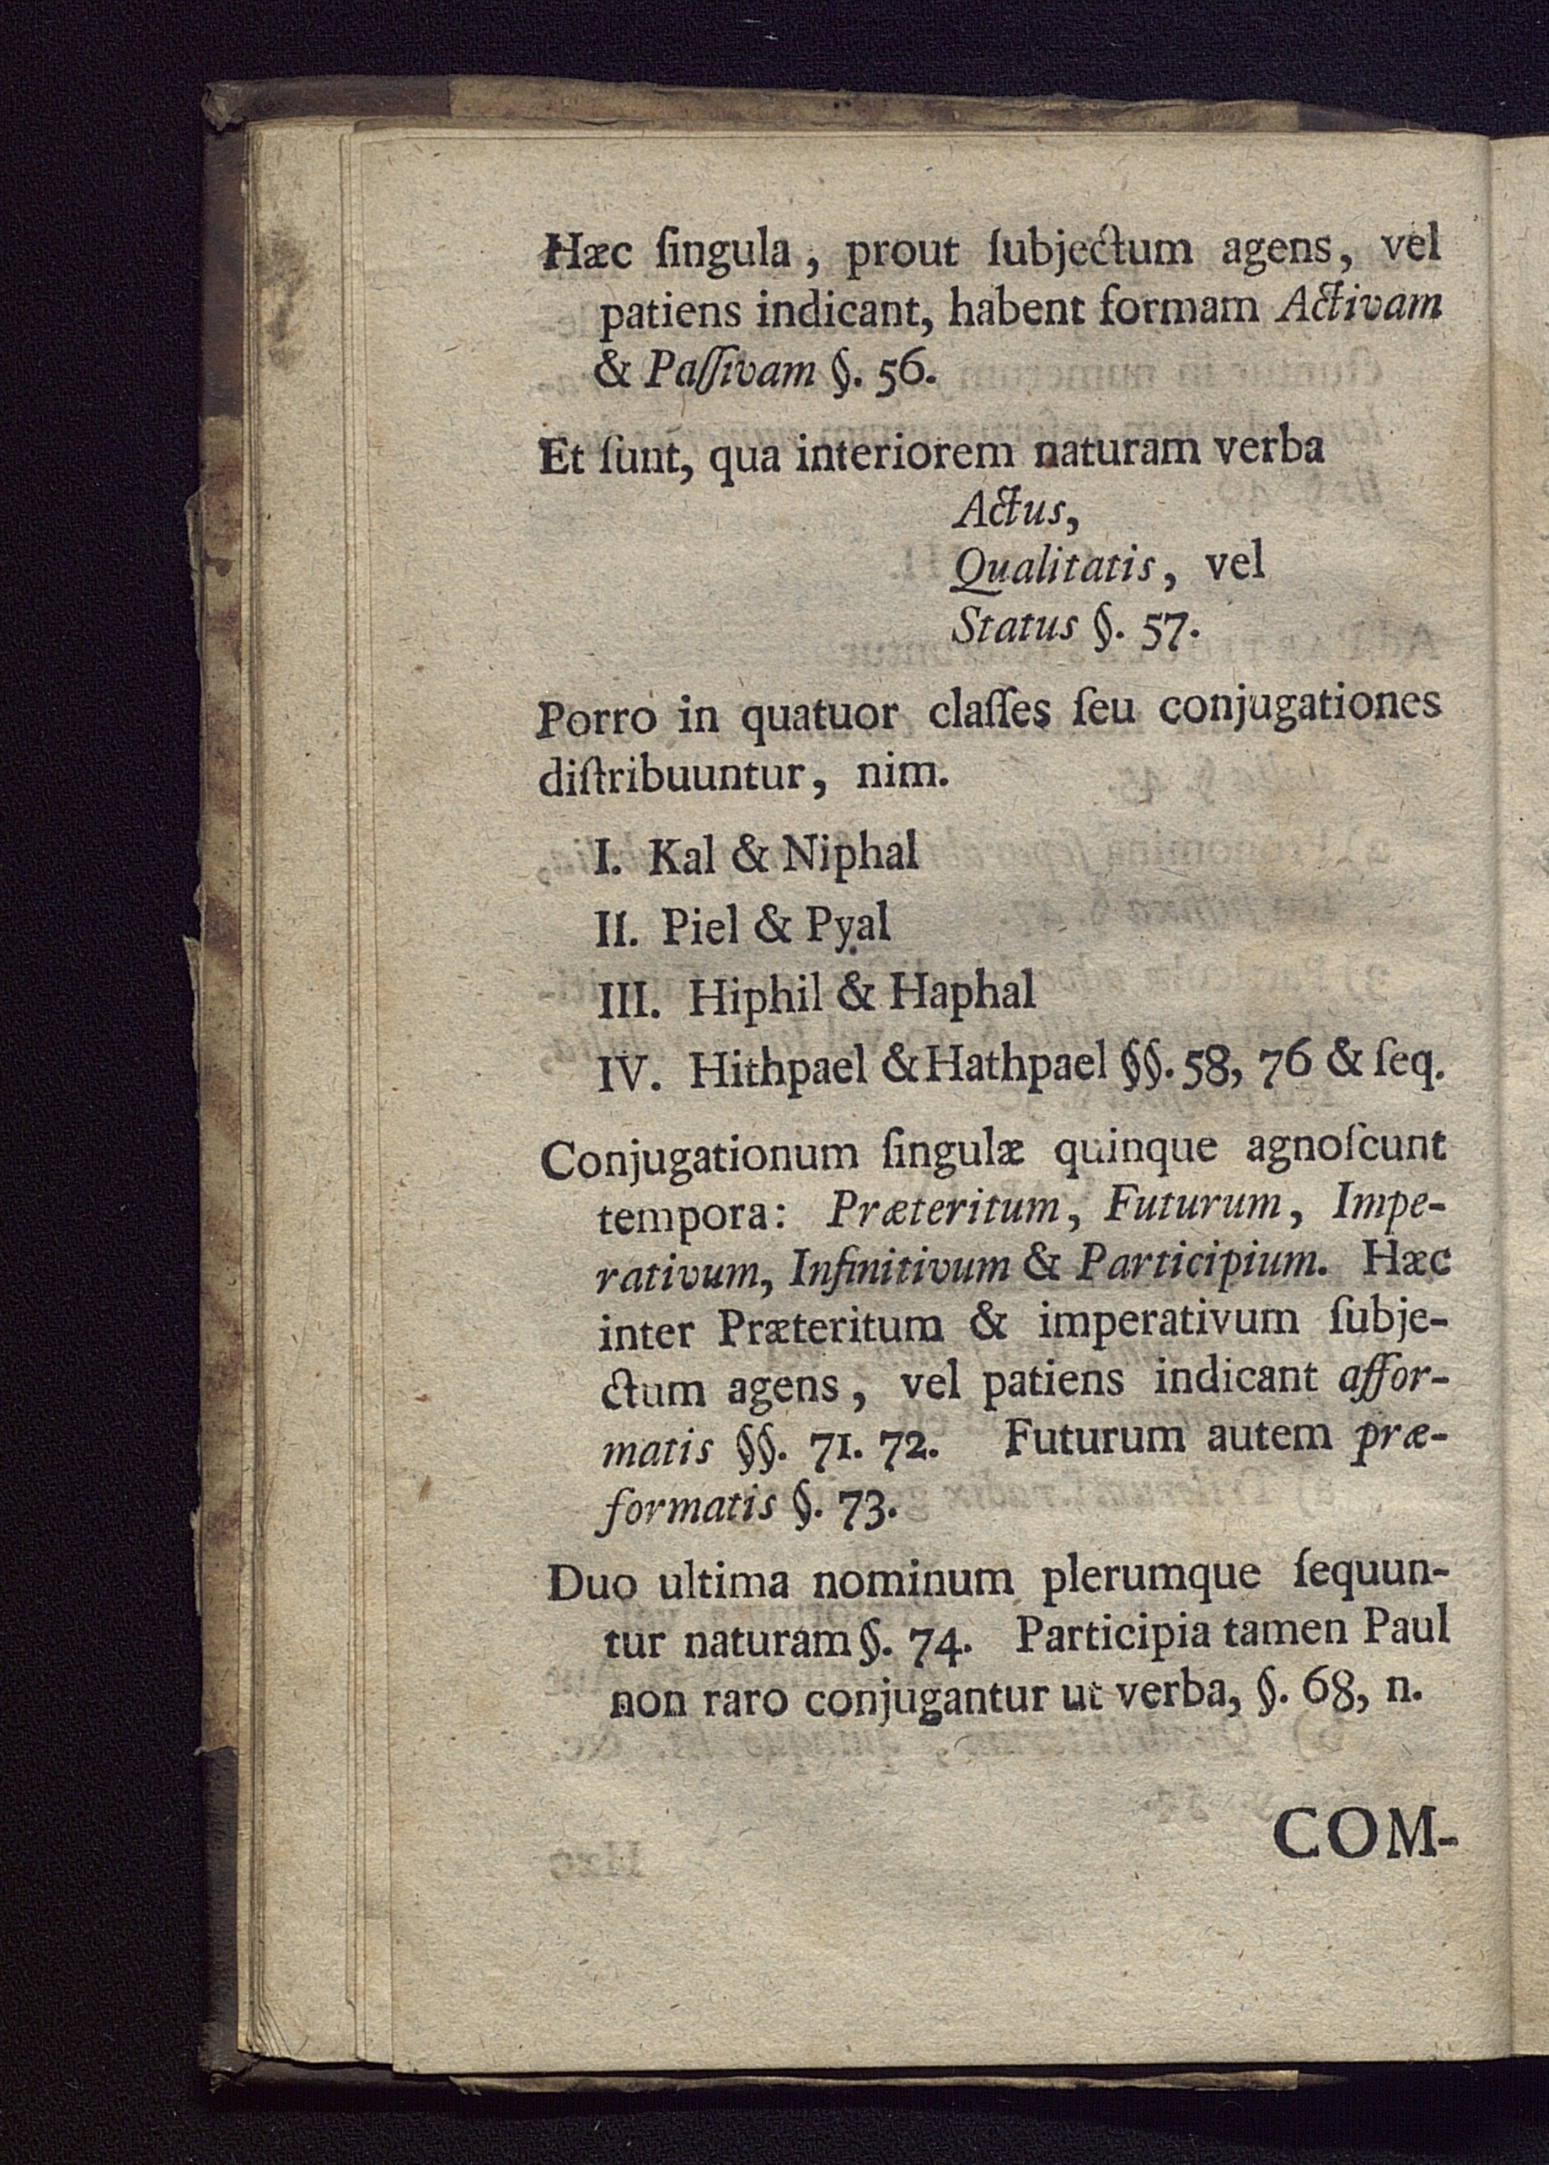 Hæc ſingula, prout ſubjectum agens, vel
patiens indicant, habent formam Activam
& Paſſivam §. 56.
Et ſunt, qua interiorem naturam verba
Actus,
Qualitatis, vel
Status §. 57.
Porro in quatuor claſſes ſeu conjugationes
diſtribuuntur, nim.
I. Kal & Niphal
II. Piel & Pyal
III. Hiphil & Haphal
IV. Hithpael & Hathpael §§. 58, 76 & ſeq.
Conjugationum ſingulæ quinque agnoſcunt
tempora: Præteritum, Futurum, Impe-
rativum, Infinitivum & Participium. Hæc
inter Præteritum & imperativum ſubje-
ctum agens, vel patiens indicant affor-
matis §§. 71. 72. Futurum autem præ-
formatis §. 73.
Duo ultima nominum plerumque ſequun-
tur naturam §. 74. Participia tamen Paul
non raro conjugantur ut verba, §. 68, n.
COM-